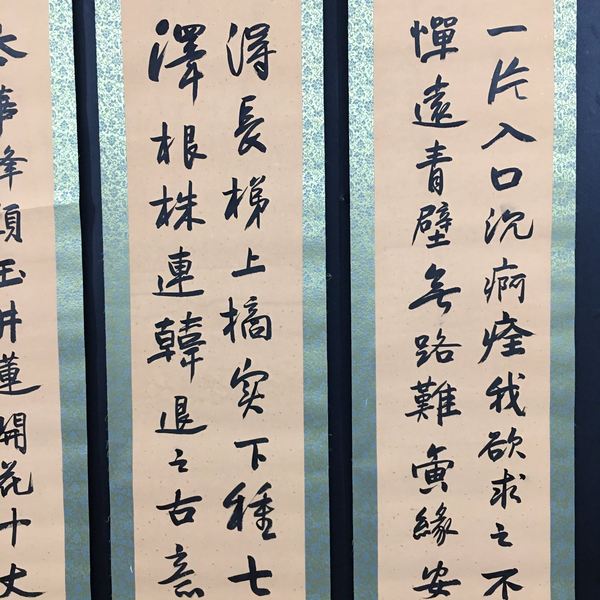 一片入口沉痾痊我欲求之不
憚遠青壁無路難寅緣安
得長梯上摘实下種七
澤根株連韓退之古意
太華峰頭玉井蓮開花十丈